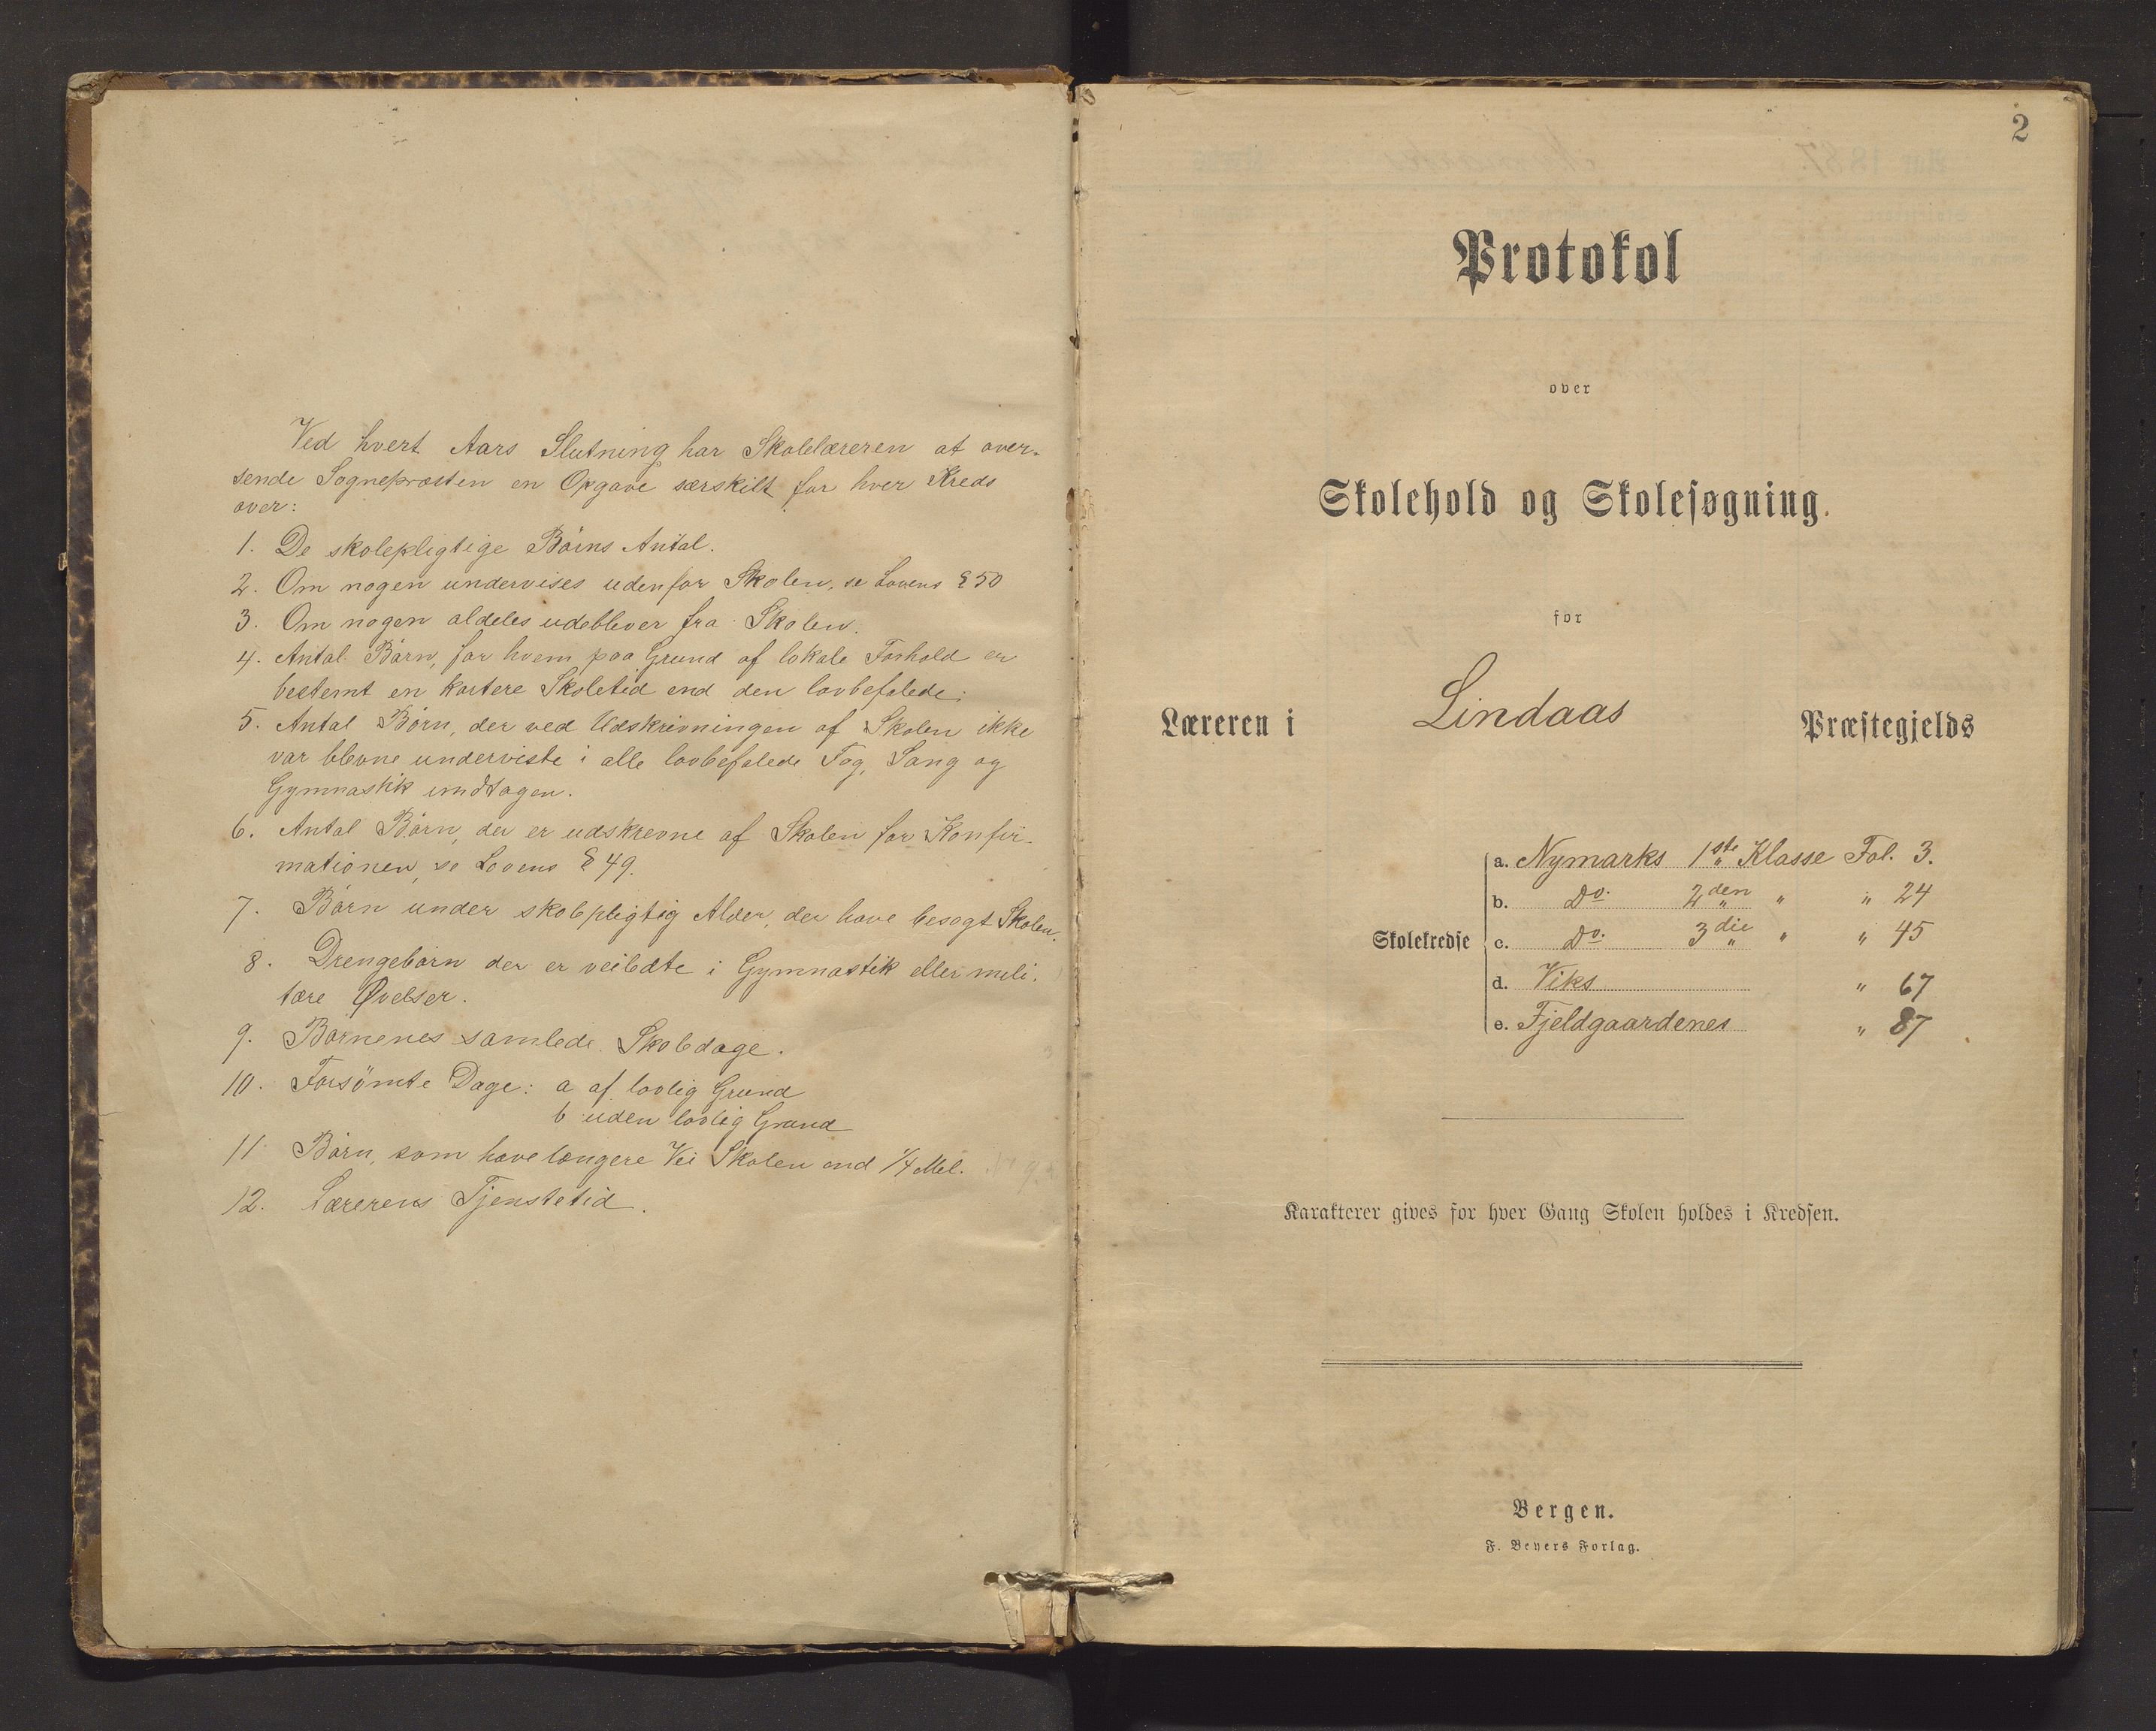 Ved hvert Aars Slutning har Skolelæreren at over-
sende Sognepræsten en Opgave særskilt for hver Kreds
over:
1. De skolepligtige Börns Antal.
2. Om nogen undervises udenfor Skolen, se Lovens § 50
3. Om nogen aldeles udebliver fra Skolen.
4. Antal Börn, for hvem paa Grund af lokale Forhold er
bestemt en kortere Skoletid end den lovbefalede.
5. Antal Börn, der ved Udskrivningen af Skolen ikke
var blevne underviste i alle lovbefalede Fag, Sang og
Gymnastik undtagen.
6. Antal Börn, der er udskrevne af Skolen før Konfir-
mationen, se Lovens § 49.
7. Börn under skolepligtig Alder, der have besøgt Skolen.
8. Drengebörn der er veiledte i Gymnastik eller mili-
tære Øvelser.
9. Børnenes samlede Skoledage.
10. Forsömte Dage: a af lovlig Grund
b uden lovlig Grund
11 Börn, som have længere Vei Skolen end 1/4 Mil.
12. Lærerens Tjenstetid.
2
Protokol
over
Skolehold og Skolesøgning.
for
Læreren i Lindaas Præstegjelds
Skolekredse
a. Nymarks 1ste Klasse Fol. 3.
b. Do. 2den " " 24
c. Do. 3die " " 45
d. Viks " 67
e. Fjeldgaardenes " 87
Karakterer gives for hver Gang Skolen holdes i Kredsen.
Bergen.
F. Beyers Forlag.